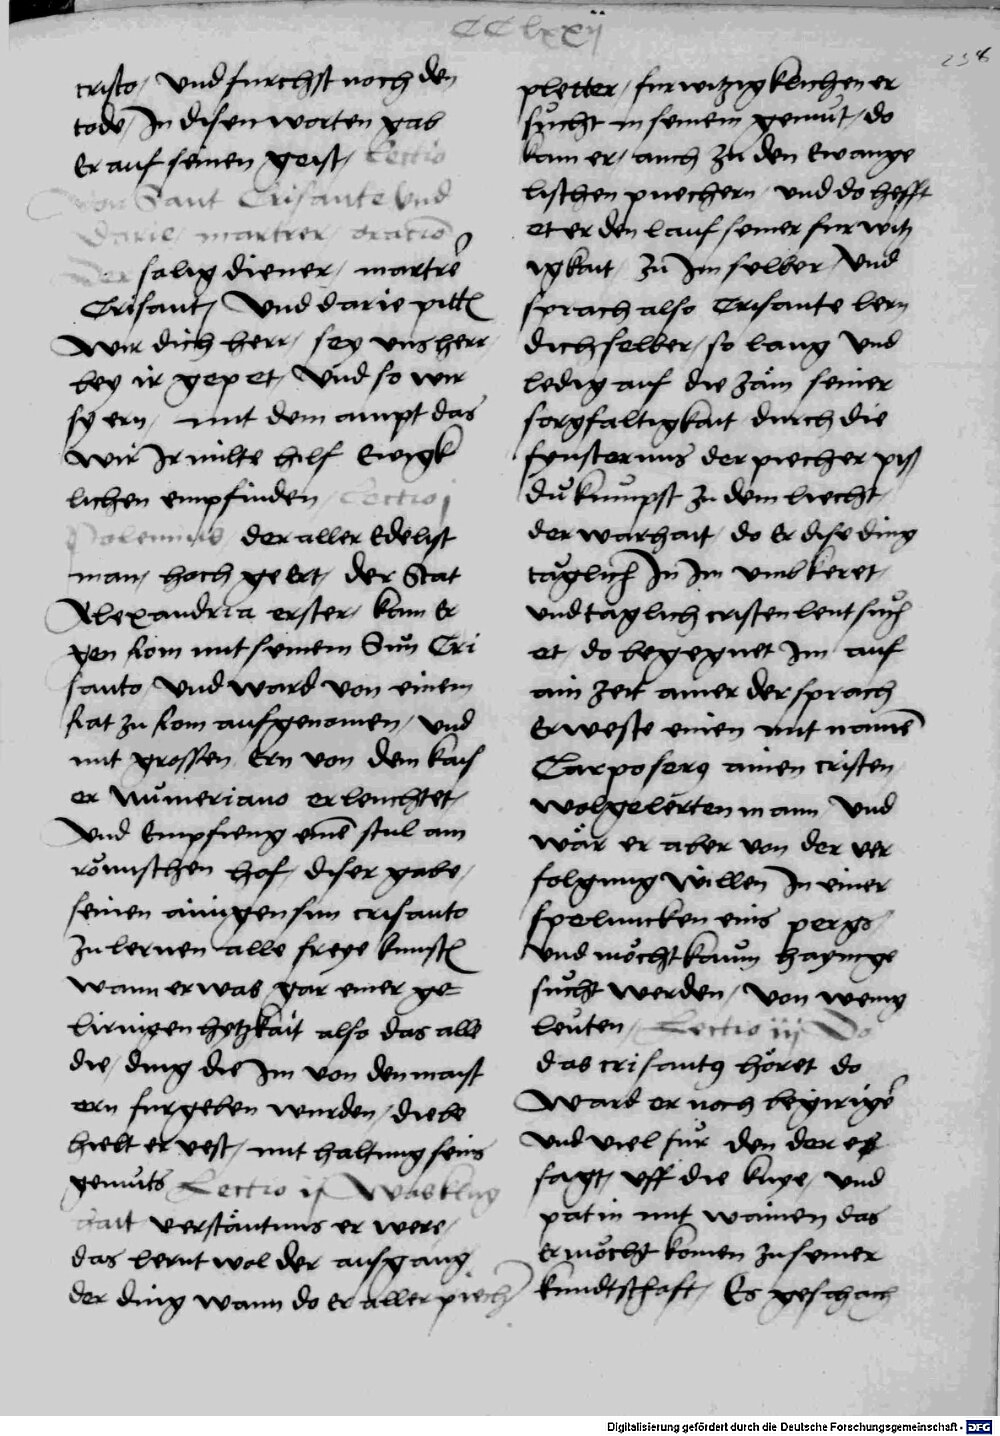 CClxxij
258
cristo / Vnd furchst noch den
tode / In disen worten gab
Er auf seinen geist / Lectio
von Sant Crisante Vnd
Darie / martrer / oracio
Der salig diener / martrer
Crisant / Vnd darie pitt
Wir dich herr / sey vns herr
bey ir gepet / Vnd so wir
sy ern / mit dem ampt das
wir Ir milte hilf Ewigk
lichen empfinden / Lectio j
Polemius der aller Edelist
man / hoch geert / der Stat
Alexandria erster / kam Er
gen Rom mit seinem Sun Cri
santo / Vnd ward von einem
Rat zu Rom aufgenomen / vnd
mit grossen Ern von dem kais
er Numeriano erleuchtet /
Vnd Empfieng eine stul am
römischen hof / diser gabe /
seinen ainigen sun crisanto
zu lernen alle freye kunst
wann er was gar einer ge
lirnigen hytzkait also das alle
die / ding die Im von den maist
ern furgeben wurden / diebe
hielt er vest / mit haltung seins
gemuts Lectio ij Was klug
hait verständtnus er were /
das lernt wol der aufgang
der ding wann do er aller piech
pletter / furwitzigklichen er
sucht in seinem gemut / do
kam er / auch zu den Ewange
lischen puechern / vnd do hefft
et er den lauf seiner furwitz
igkait / zu Im selber / Vnd
sprach also Crisante lern
dich selber / so lang Vnd
ledig auf die zäm seiner
sorgfaltigkait durch die
fynsternus der piecher piß
du kumpst zu dem liecht /
der warhait / do Er dise ding
täglich In Im vmbkeret /
vnd täglich cristenleut such
et / do begegnet Im auf
ain zeit ainer der sprach
Er weste einen mit namen
Carposerus ainen cristen
wolgelerten mann / Vnd
wär er aber von der ver
folgung willen In einer
speluncken eins pergs /
vnd möcht kaum haymge
sucht werden / von wenig
leuten / Lectio iij Do
das crisantus höret do
Ward er noch begiriger
vnd viel fur den der es
sagt / vff die knye / vnd
patin mit wainen das
er möcht komen zu seiner
kundtschaft / Es geschach
Digitalisierung gefördert durch die Deutsche Forschungsgemeinschaft - DFG